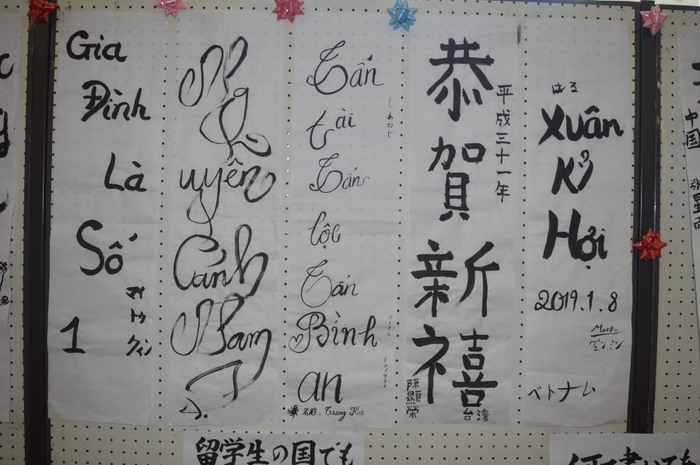 Gia
Đình
Là
Số
1
uyên
Cảnh
Nam
Tấn
tài
Tấn
lộc
Tấn
Bình
an
名前: Trang
恭
賀
新
禧
平成三十一年
陳顯榮
台湾
はる
Xuân
Kỷ
Hợi
2019.1.8
Minh
ベトナム
中国
留学生の国でも